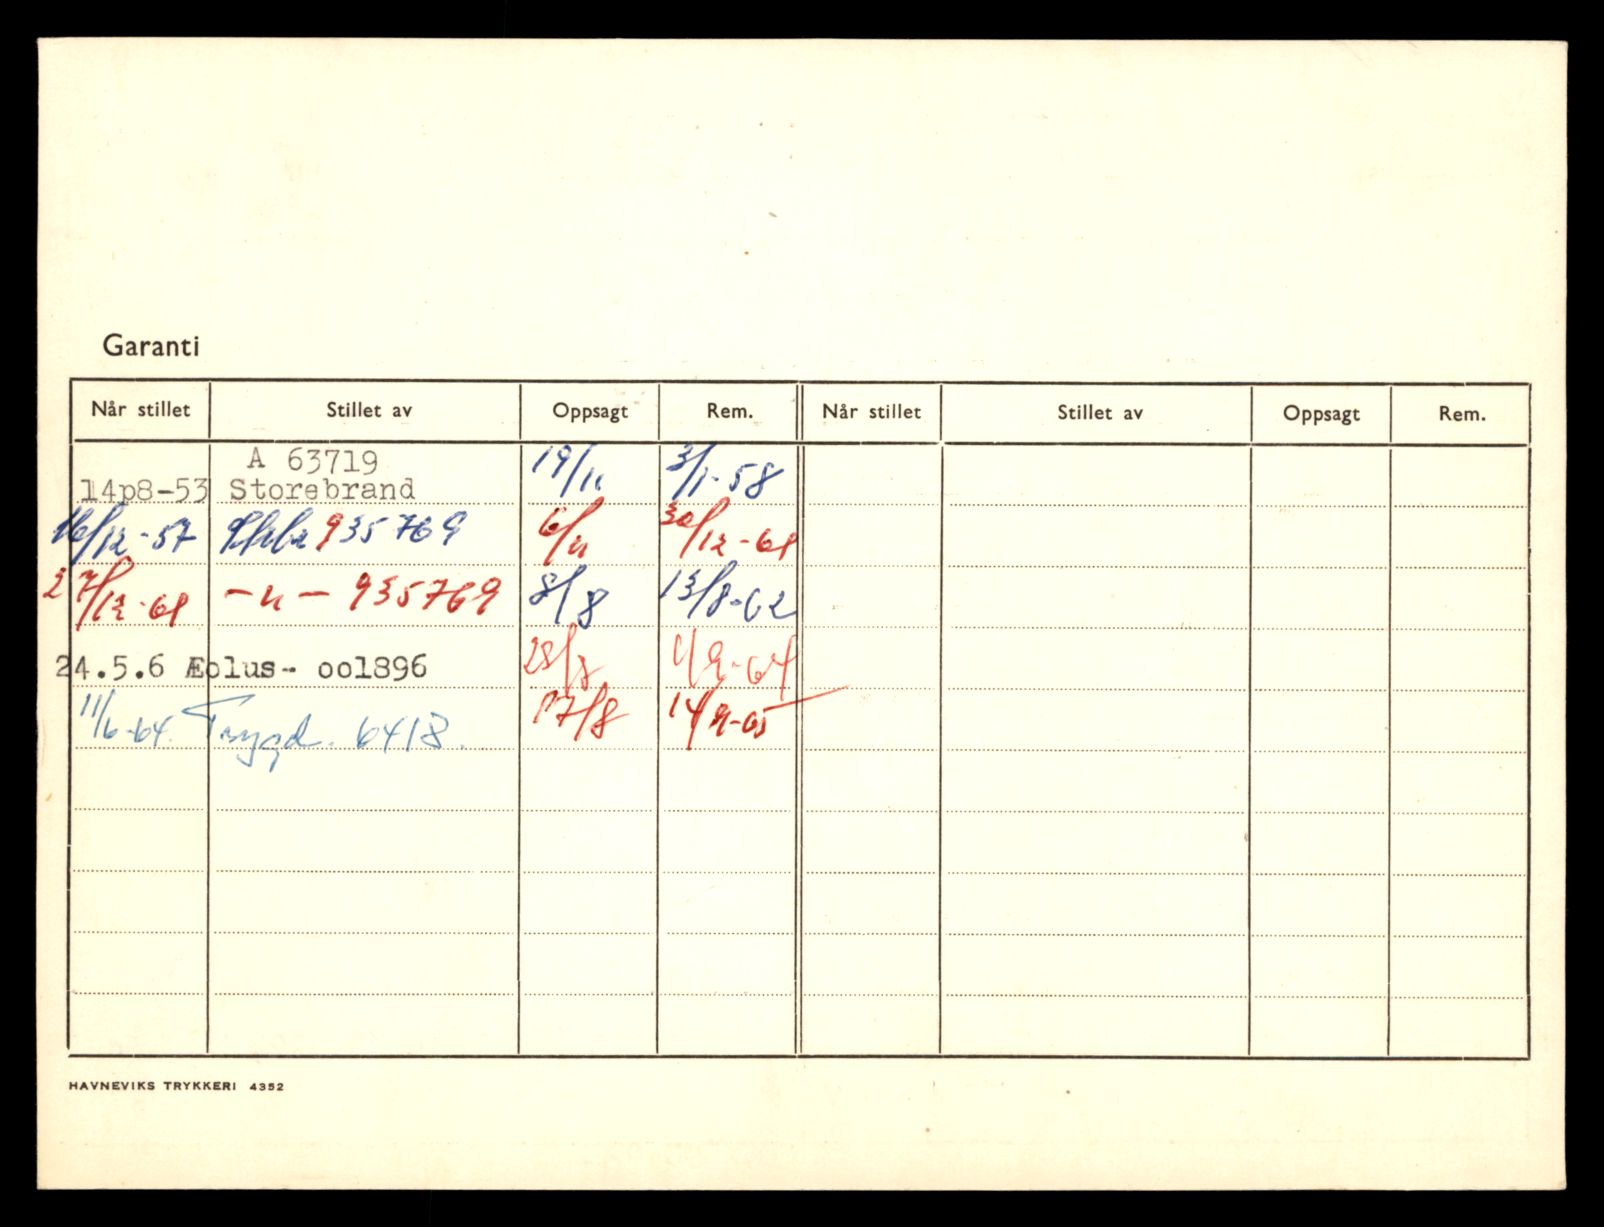 Garanti
Når stillet Stillet av Oppsagt Rem. Når stillet Stillet av Oppsagt Rem.
A 63719 19/11 3/1-58
14p8-53 Storebrand
16/12-57 935769 6/11 30/12-61
27/12-61 -"- 935769 8/8 13/8-62
24.5.6 Æolus- ool896 28/8 1/9-64
11/6-64. Trygd. 6418. 17/8 14/9-65
HAVNEVIKS TRYKKERI 4352